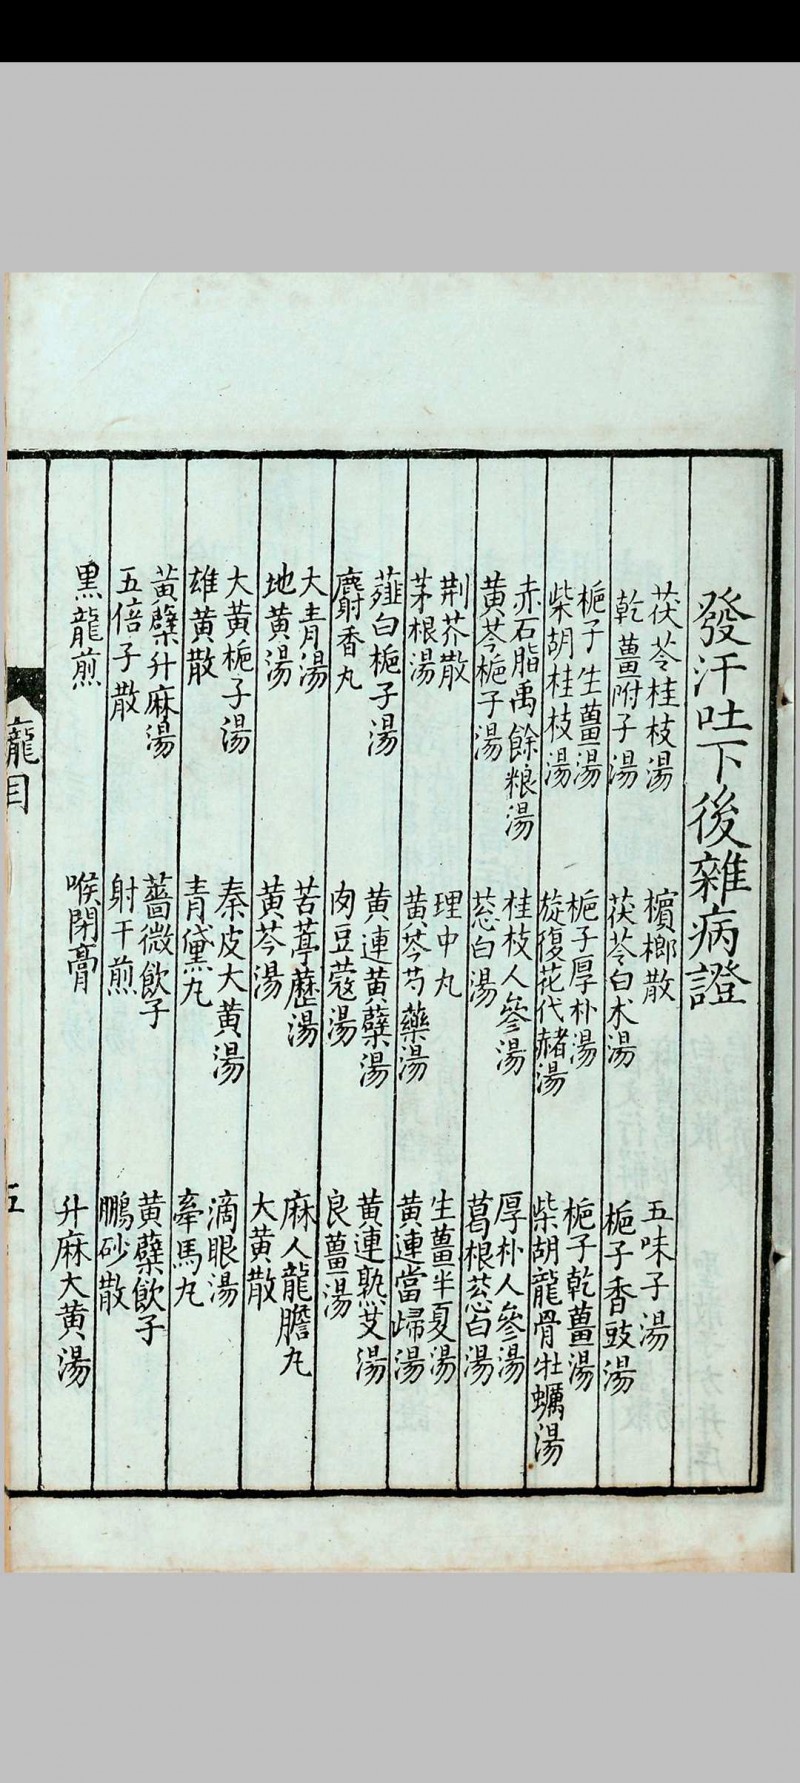 發汗吐下後雜病證
茯苓桂枝湯　檳榔散　五味子湯
乾薑附子湯　茯苓白术湯　梔子香豉湯
梔子生薑湯　梔子厚朴湯　梔子乾薑湯
柴胡桂枝湯　旋復花代赭湯　柴胡龍骨牡蠣湯
赤石脂禹餘粮湯　桂枝人參湯　厚朴人參湯
黃芩梔子湯　葱白湯　葛根葱白湯
荆芥散　理中丸　生薑半夏湯
茅根湯　黃芩芍藥湯　黃連當歸湯
薤白梔子湯　黃連黃蘗湯　黃連熟艾湯
麝香丸　肉豆蔻湯　良薑湯
大青湯　苦葶藶湯　麻人龍膽丸
地黃湯　黃芩湯　大黃散
大黃梔子湯　秦皮大黃湯　滴眼湯
雄黃散　青黛丸　牽馬丸
黃蘗升麻湯　薔薇飲子　黃蘗飲子
五倍子散　射干煎　鵬砂散
黑龍煎　喉閉膏　升麻大黃湯
龐目
五